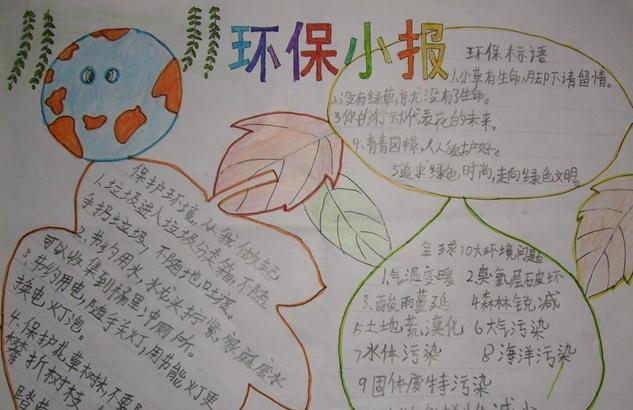 环保小报
环保标语
1.小草有生命,足下请留情。
2.没有绿草,就没有了生命。
3.你的行动代表花的未来。
4.青青园, 人人爱护好。
5.追求绿色时尚,走向绿色文明。
保护环境,从我做起
1.垃圾进入垃圾分类箱,不随
手扔垃圾,不随地吐痰。
2.节约用水,水龙头拧紧,家庭废水
可以收集到桶里,冲厕所。
3.节约用电,随手关灯,用节能灯更
换电灯泡。
4.保护花草树木,不要
攀折树枝
踏草
全球10大环境问题
1.气温变暖 2.臭氧层破坏
3.酸雨蔓延 4森林锐减
5土地荒漠化 6大气污染
7水体污染 8海洋污染
9固体废特污染